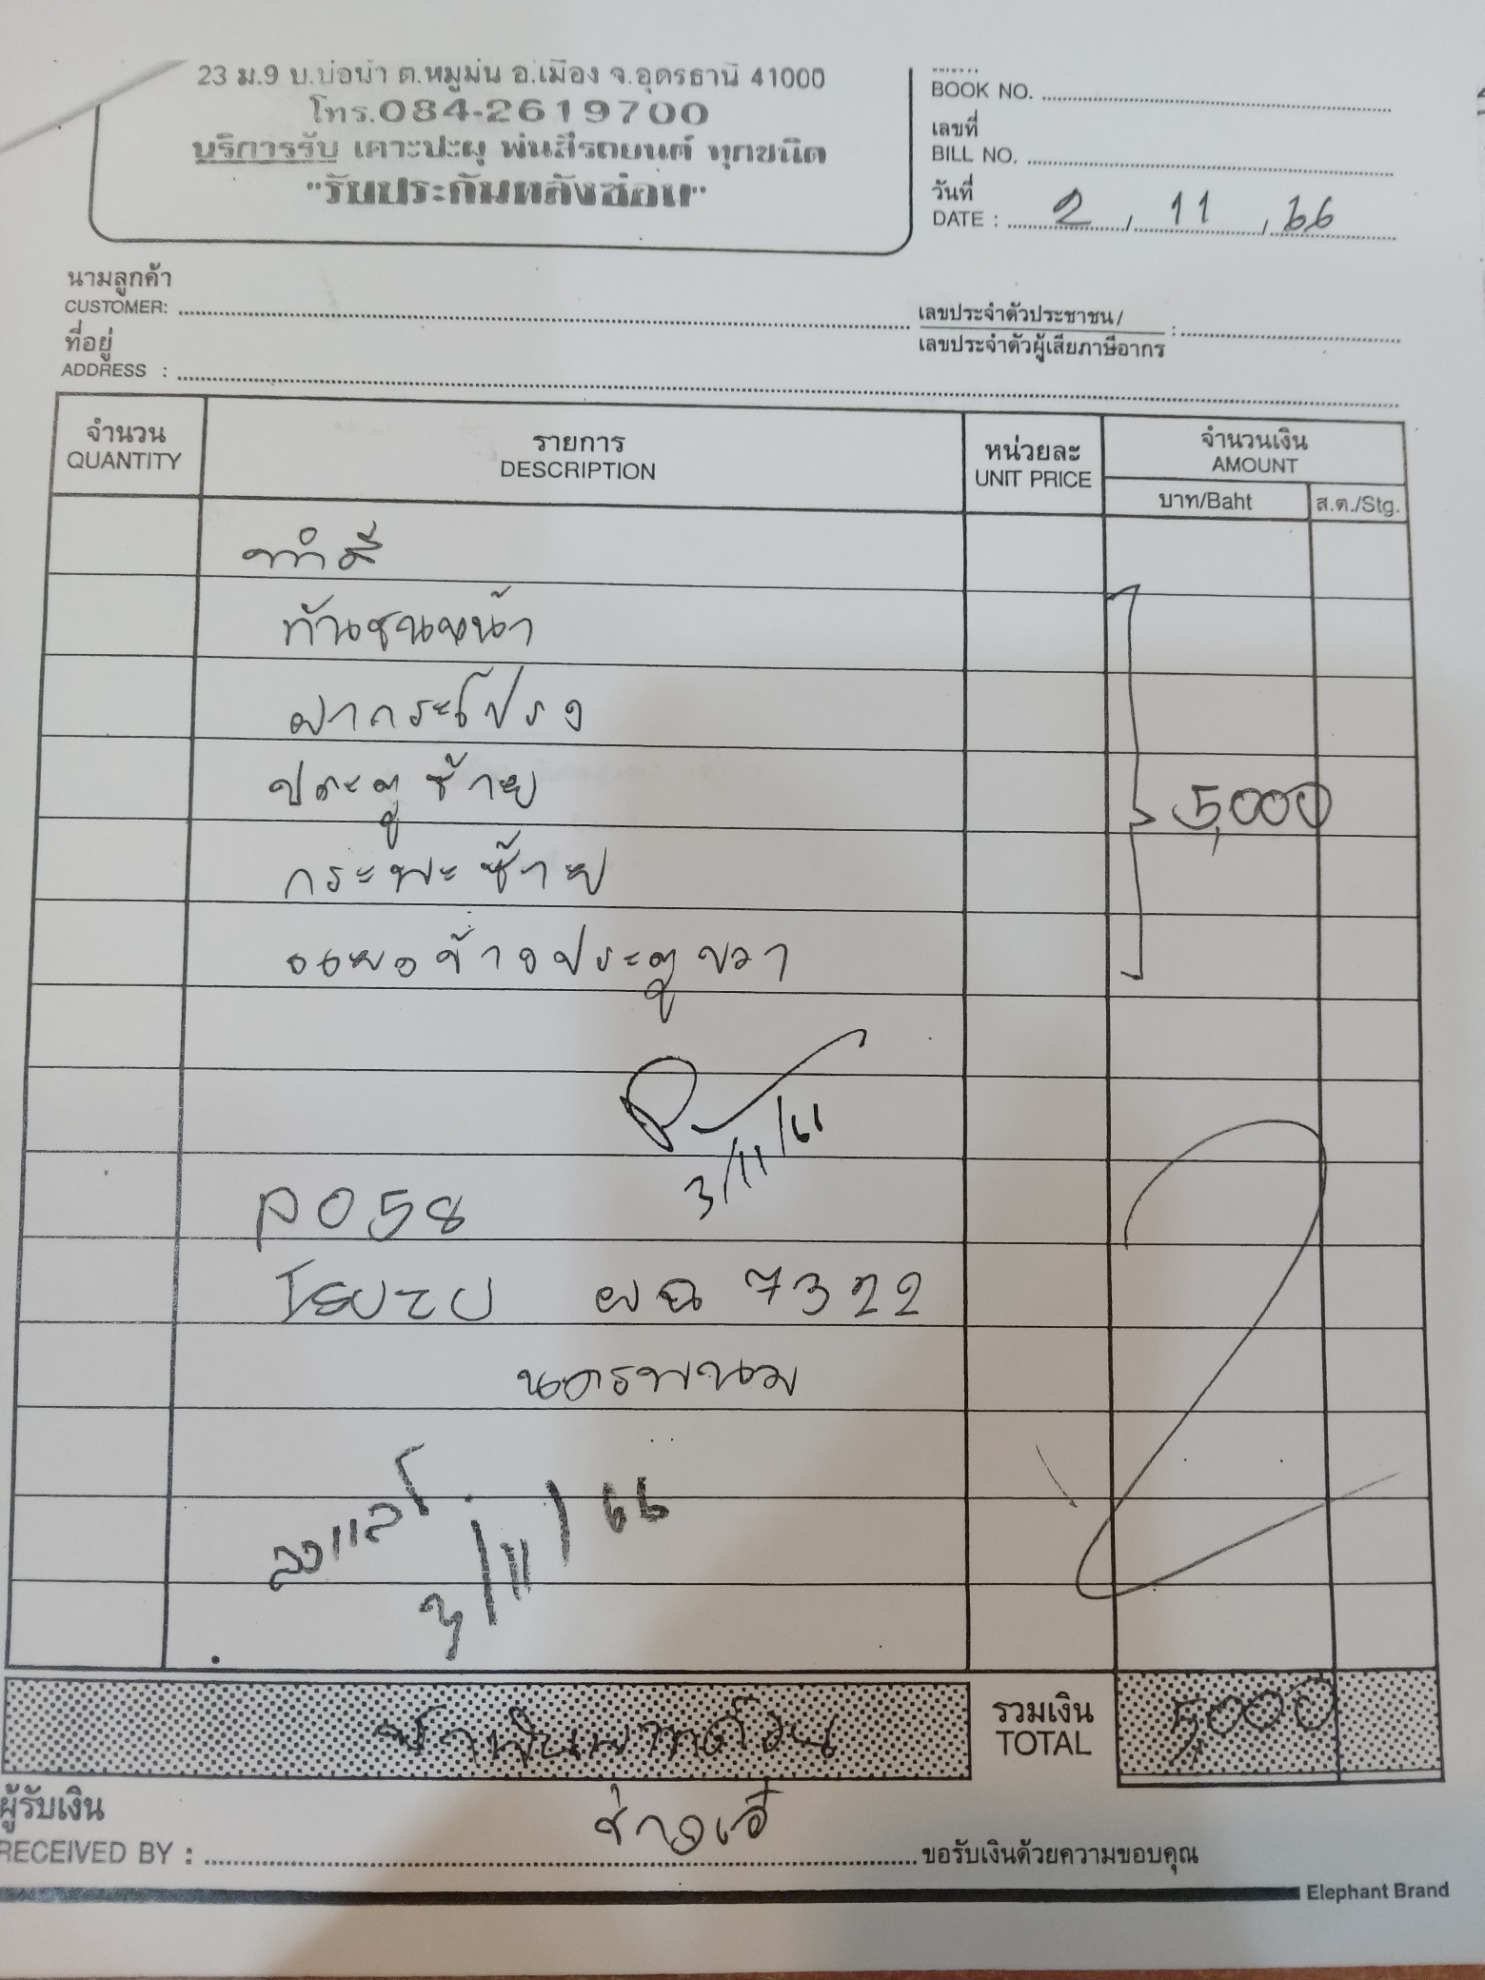 23 ม.9 บ.บ่อน้ำ ต.หมูม่น อ.เมือง จ.อุดรธานี 41000
โทร.084-2619700
บริการรับ เคาะปะผุ พ่นสีรถยนต์ ทุกชนิด
"รับประกันหลังซ่อม"
BOOK NO.
เลขที่
BILL NO.
วันที่
DATE : 2 / 11 / 66
นามลูกค้า
CUSTOMER:
เลขประจำตัวประชาชน/
เลขประจำตัวผู้เสียภาษีอากร :
ที่อยู่
ADDRESS :
จำนวน รายการ หน่วยละ จำนวนเงิน
QUANTITY DESCRIPTION UNIT PRICE AMOUNT
บาท/Baht ส.ต./Stg.
ทำสี
กันชนหน้า
ฝากระโปรง
ประตูซ้าย
5,000
กระพะซ้าย
ข้างประตูขวา
3/11/66
P058
ผฉ 7322
นครพนม
3/11/66
ห้าพันบาทถ้วน
รวมเงิน
TOTAL 5,000
ผู้รับเงิน
RECEIVED BY : ช่างเอ๋ ขอรับเงินด้วยความขอบคุณ
Elephant Brand